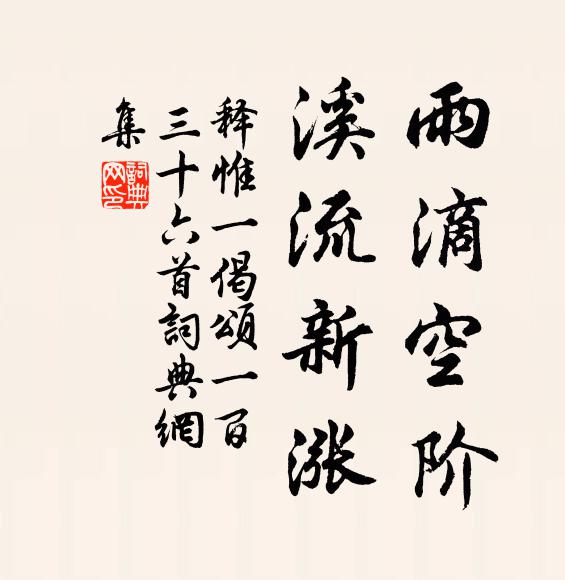 雨滴空阶
溪流新涨
释惟一偈頌一百
三十六首詞典網
集
詞典
网印